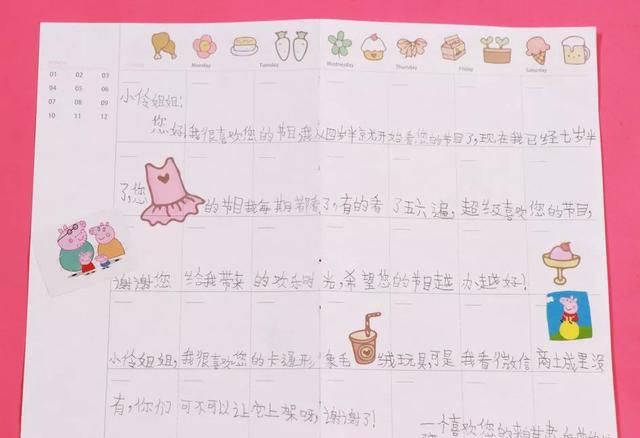 01 02 03
04 05 06
07 08 09
10 11 12
Monday Tuesday Wednesday Thursday Friday Saturday
小伶姐姐:
您好!我很喜欢您的节目我从四岁半就开始看您的节目了,现在我已经七岁半
了,您的节目我每期都看了,有的看了五六遍,超级喜欢您的节目,
谢谢您给我带来的欢乐时光,希望您的节目越办越好!
小伶姐姐,我很喜欢您的卡通形象毛绒玩具,可是我看微信商城里没
有,你们可不可以让它上架呀,谢谢了!
一个喜欢您的